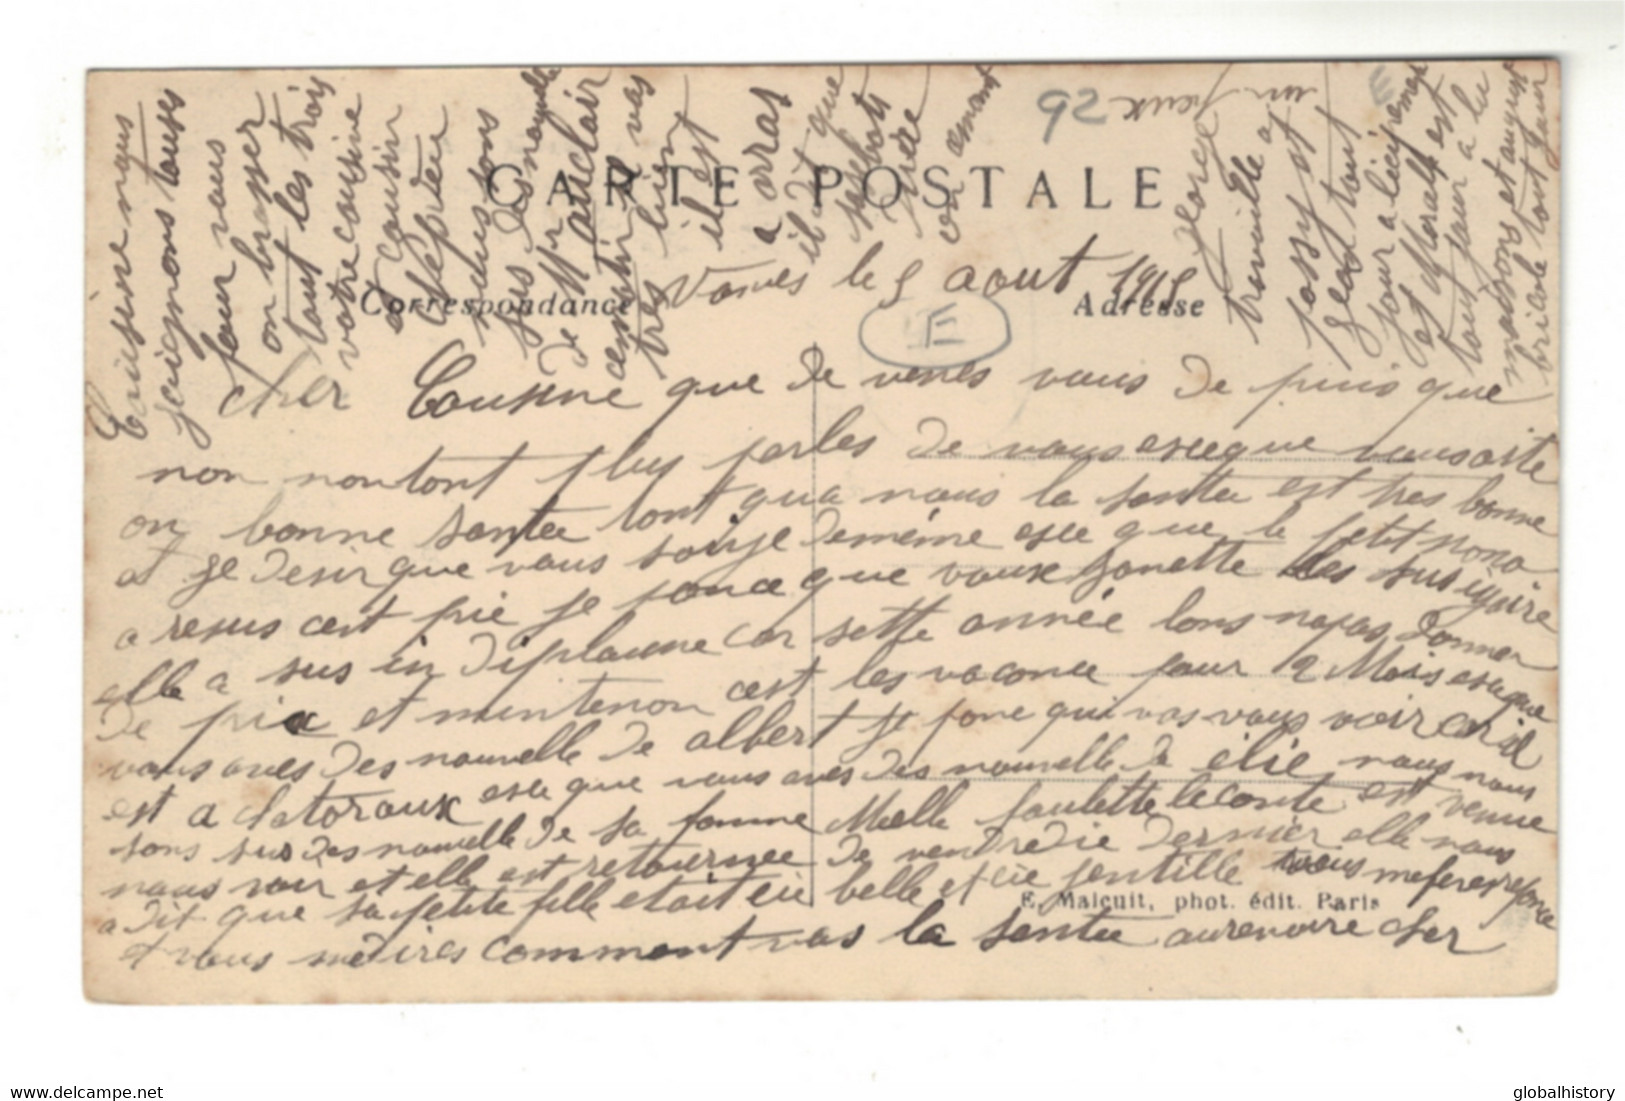 CARTE POSTALE
Correspondance
Adresse
92
E
E
Vanves le 5 aout 1915
cher Cousine que de venes vous de puis que
non nontont plus parles de vous esceque vous aite
on bonne santee tont qua nous la santee est tres bonne
et je desir que vous soiye de même esce que le petit nono
a resus cest prie je ponce que vaux Jonette les
elle a sus in diplaume car sette année lons napas donner
de prix et mintenon cest les vacance pour 2 Mois esceque
vous aves des nouvelle de albert je ponce qui vas vous voir car il
est a chatoraux esce que vous aves des nouvelle de élie nous nous
sons sus des nouvelle de sa famme Melle paulette leconte est venue
nous voir et elle est retournee de vendredie dernier elle nous
a dit que sa petite fille etait si belle et si jentille vous me feres reponce
et vous me dires comment vas la santee aurenoire cher
Cousine nous
joignons touses
pour vous
on brasser
tout les trois
votre cousine
et cousin
nous sons
des nouvelle
de Mr
auclair
tres bien
il est
a arras
il dit que
on esmant
un peux
George
travaille a
jossy et
Jean tout
jour a
et Moralb est
tout jour a la
maisons et auguste
bricole tout jour
E. Malcuit, phot. édit. Paris
delcampe.net
globalhistory